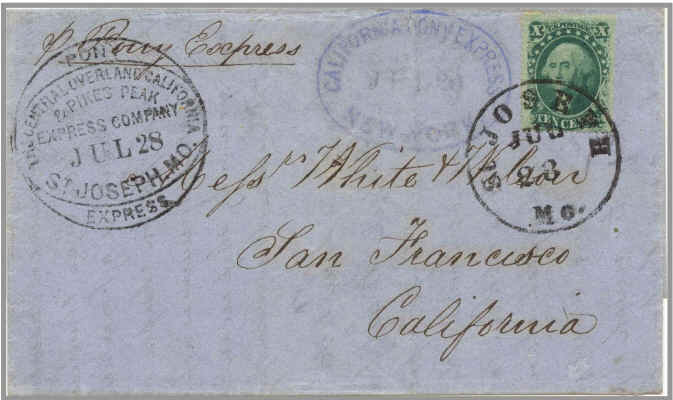 p. Pony Express
PONY
CENTRAL OVERLAND CALIFORNIA
& PIKES PEAK
EXPRESS COMPANY
JUL 28
ST. JOSEPH, MO.
EXPRESS
CALIFORNIA PONY EXPRESS
JUL 20
NEW-YORK
X X
TEN CENTS
ST. JOSEPH
JUL
28
Mo.
Messrs White & Wilson
San Francisco
California